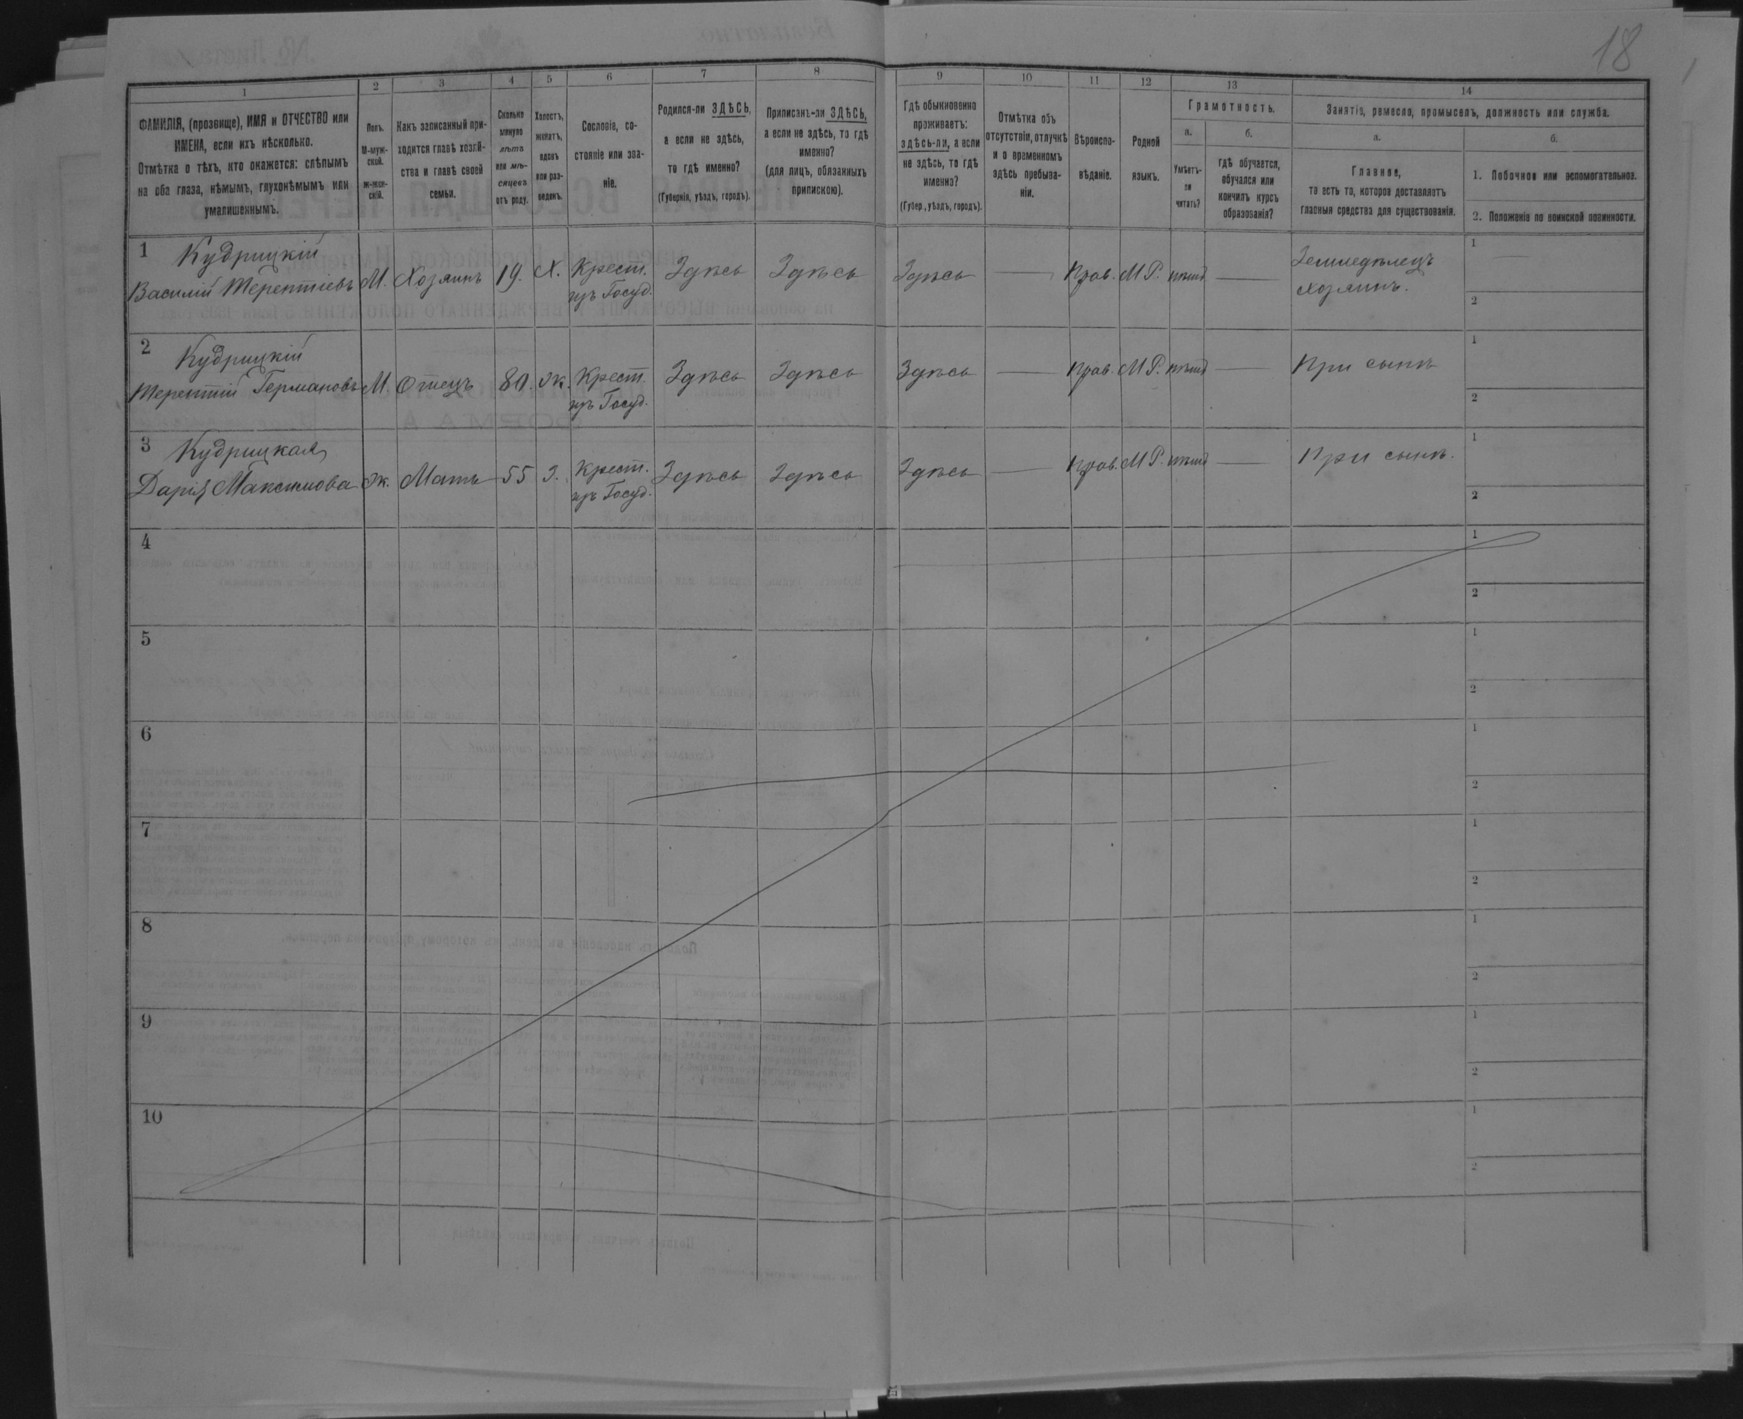 18
1
2
3
4
5
6
7
8
9
10
11
12
13
14
ФАМИЛІЯ, (прозвище), ИМЯ и ОТЧЕСТВО или
ИМЕНА, если ихъ нѣсколько.
Отмѣтка о тѣхъ, кто окажется: слѣпымъ
на оба глаза, нѣмымъ, глухонѣмымъ или
умалишеннымъ.
Полъ.
М-муж-
ской.
ж-жен-
скій.
Какъ записанный при-
ходится главѣ хозяй-
ства и главѣ своей
семьи.
Сколько
минуло
лѣтъ
или мѣ-
сяцевъ
отъ роду.
Холостъ,
женатъ,
вдовъ
или раз-
веденъ.
Сословіе, со-
стояніе или зва-
ніе.
Родился-ли ЗДѢСЬ,
а если не здѣсь,
то гдѣ именно?
(Губернія, уѣздъ, городъ).
Приписанъ-ли ЗДѢСЬ,
а если не здѣсь, то гдѣ
именно?
(для лицъ, обязанныхъ
припискою).
Гдѣ обыкновенно
проживаетъ:
здѣсь-ли, а если
не здѣсь, то гдѣ
именно?
(Губер., уѣздъ, городъ).
Отмѣтка объ
отсутствіи, отлучкѣ
и о временномъ
здѣсь пребыва-
ніи.
Вѣроиспо-
вѣданіе.
Родной
языкъ.
Грамотность.
а.
Умѣетъ-
ли
читать?
б.
гдѣ обучается,
обучался или
кончилъ курсъ
образованія?
Занятіе, ремесло, промыселъ, должность или служба.
а.
Главное,
то есть то, которое доставляетъ
главныя средства для существованія.
б.
1. Побочное или вспомогательное.
2. Положеніе по воинской повинности.
1 Кудрицкій
Василій Терентіевъ М. Хозяинъ 19. Х. Крест. изъ Госуд. Здѣсь Здѣсь Здѣсь — Прав. М.Р. нѣтъ — Земледѣлецъ хозяинъ.
1
2
2 Кудрицкій
Терентій Германовъ М. Отецъ 80. Ж. Крест. изъ Госуд. Здѣсь Здѣсь Здѣсь — Прав. М.Р. нѣтъ — При сынѣ
1
2
3 Кудрицкая
Дарія Максимова Ж. Мать 55 З. Крест. изъ Госуд. Здѣсь Здѣсь Здѣсь — Прав. М.Р. нѣтъ — При сынѣ.
1
2
4
1
2
5
1
2
6
1
2
7
1
2
8
1
2
9
1
2
10
1
2